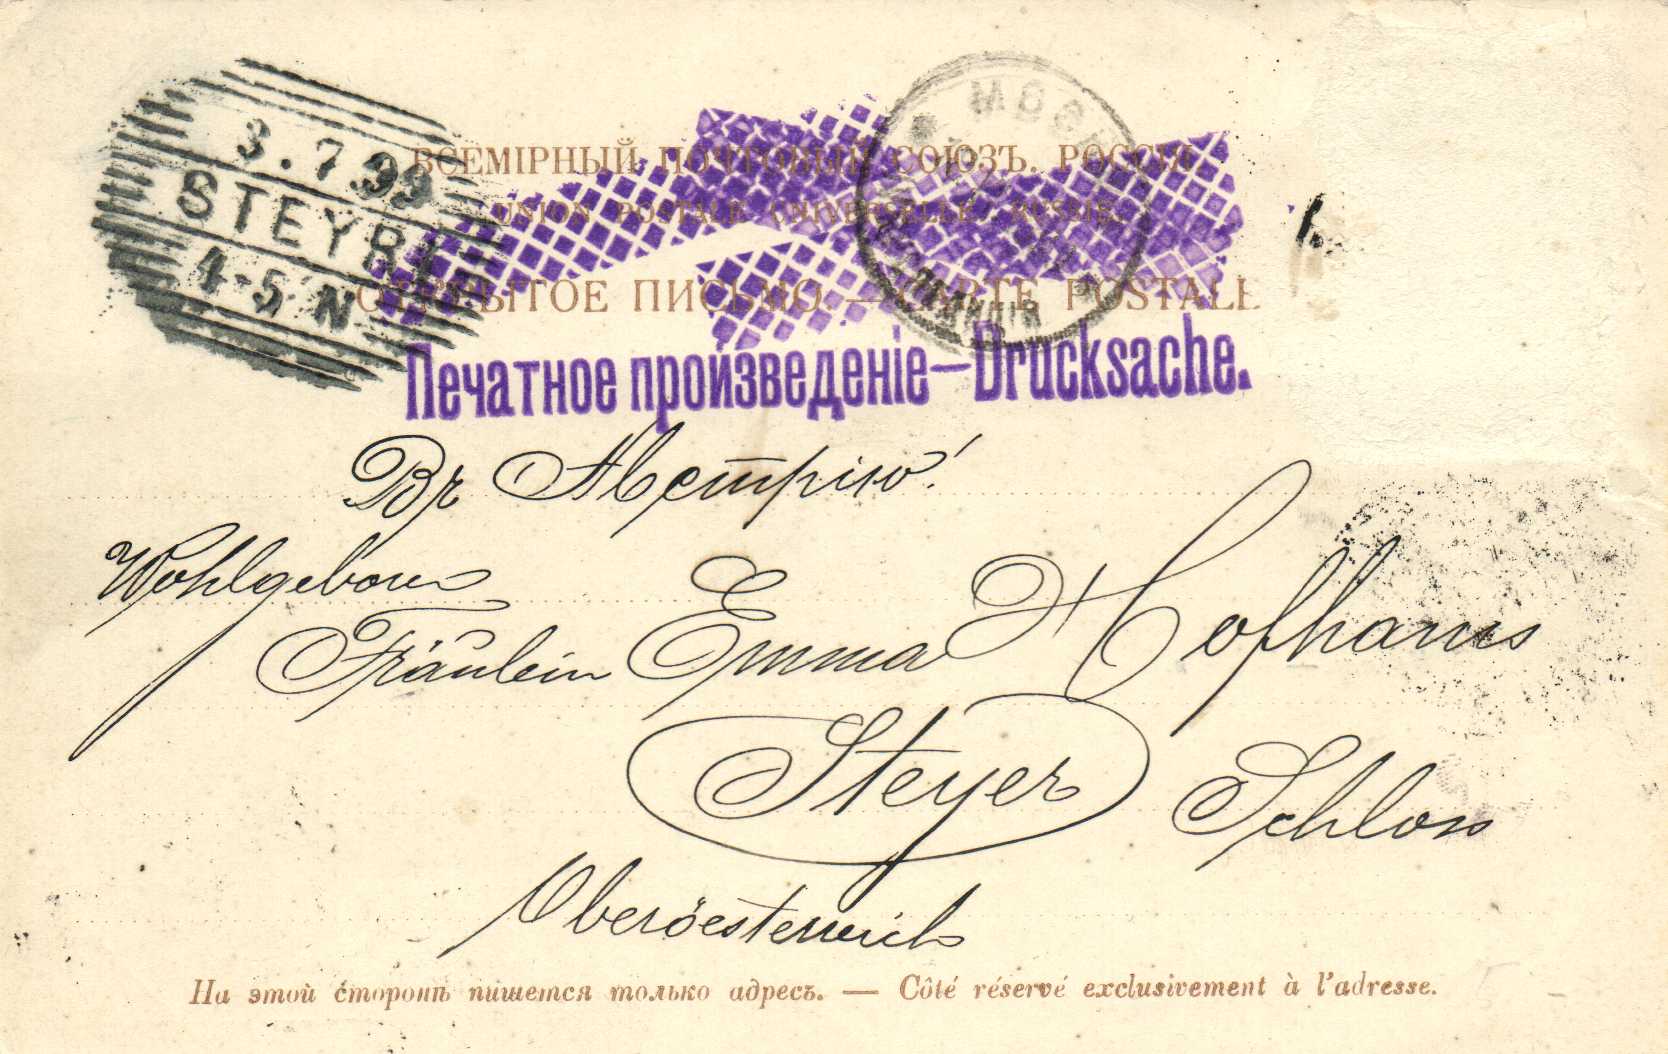 ВСЕМІРНЫЙ ПОЧТОВЫЙ СОЮЗЪ. РОССІЯ
UNION POSTALE UNIVERSELLE. RUSSIE.
ОТКРЫТОЕ ПИСЬМО. — CARTE POSTALE
3.7 99
STEYR
4-5 N
МОСКВА
Печатное произведеніе — Drucksache.
Въ Австрію!
Wohlgeboren
Fräulein Emma Hofhans
Steyer Schloss
Oberöesterreich
На этой сторонѣ пишется только адресъ. — Côté réservé exclusivement à l'adresse.